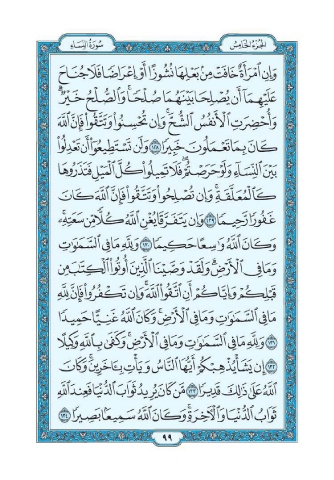 سُورَةُ النِّسَاءِ
الجُزءُ الخَامِسُ
وَإِنِ ٱمْرَأَةٌ خَافَتْ مِنۢ بَعْلِهَا نُشُوزًا أَوْ إِعْرَاضًا فَلَا جُنَاحَ
عَلَيْهِمَآ أَن يُصْلِحَا بَيْنَهُمَا صُلْحًا ۚ وَٱلصُّلْحُ خَيْرٌ ۗ
وَأُحْضِرَتِ ٱلْأَنفُسُ ٱلشُّحَّ ۚ وَإِن تُحْسِنُوا۟ وَتَتَّقُوا۟ فَإِنَّ ٱللَّهَ
كَانَ بِمَا تَعْمَلُونَ خَبِيرًا ١٢٨ وَلَن تَسْتَطِيعُوٓا۟ أَن تَعْدِلُوا۟
بَيْنَ ٱلنِّسَآءِ وَلَوْ حَرَصْتُمْ ۖ فَلَا تَمِيلُوا۟ كُلَّ ٱلْمَيْلِ فَتَذَرُوهَا
كَٱلْمُعَلَّقَةِ ۚ وَإِن تُصْلِحُوا۟ وَتَتَّقُوا۟ فَإِنَّ ٱللَّهَ كَانَ
غَفُورًا رَّحِيمًا ١٢٩ وَإِن يَتَفَرَّقَا يُغْنِ ٱللَّهُ كُلًّا مِّن سَعَتِهِۦ ۚ
وَكَانَ ٱللَّهُ وَٰسِعًا حَكِيمًا ١٣٠ وَلِلَّهِ مَا فِى ٱلسَّمَٰوَٰتِ
وَمَا فِى ٱلْأَرْضِ ۗ وَلَقَدْ وَصَّيْنَا ٱلَّذِينَ أُوتُوا۟ ٱلْكِتَٰبَ مِن
قَبْلِكُمْ وَإِيَّاكُمْ أَنِ ٱتَّقُوا۟ ٱللَّهَ ۚ وَإِن تَكْفُرُوا۟ فَإِنَّ لِلَّهِ
مَا فِى ٱلسَّمَٰوَٰتِ وَمَا فِى ٱلْأَرْضِ ۚ وَكَانَ ٱللَّهُ غَنِيًّا حَمِيدًا
١٣١ وَلِلَّهِ مَا فِى ٱلسَّمَٰوَٰتِ وَمَا فِى ٱلْأَرْضِ ۚ وَكَفَىٰ بِٱللَّهِ وَكِيلًا
١٣٢ إِن يَشَأْ يُذْهِبْكُمْ أَيُّهَا ٱلنَّاسُ وَيَأْتِ بِـَٔاخَرِينَ ۚ وَكَانَ
ٱللَّهُ عَلَىٰ ذَٰلِكَ قَدِيرًا ١٣٣ مَّن كَانَ يُرِيدُ ثَوَابَ ٱلدُّنْيَا فَعِندَ ٱللَّهِ
ثَوَابُ ٱلدُّنْيَا وَٱلْءَاخِرَةِ ۚ وَكَانَ ٱللَّهُ سَمِيعًۢا بَصِيرًا ١٣٤
٩٩